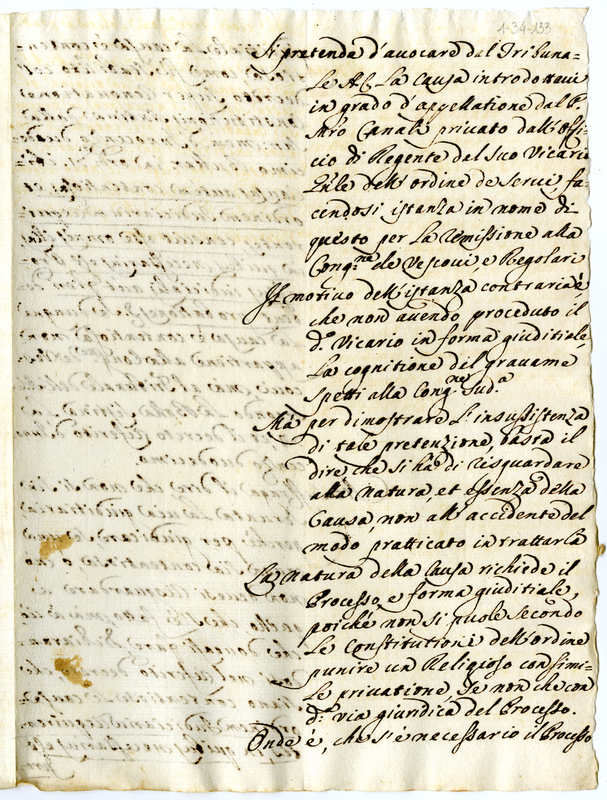 1-34-133
Si pretende d'avocare dal Tribuna=
le AC. La Causa introdottavi
in grado d'appellatione dal P.
Mro Canali privato dall'offi-
cio di Regente dal suo Vicario
Gnle dell'ordine de Servi, fa-
cendosi istanza in nome di
questo per La remissione alla
Cong.ne de Vescovi, e Regolari
Il motivo dell'istanza contraria è
che non avendo proceduto il
d.o Vicario in forma giuditiale
La cognitione del gravame
spetti alla Cong.ne Sud.a
Ma per dimostrare L'insussistenza
di tale pretenzione, basta il
dire, che si ha di risguardare
alla natura, et essenza della
Causa, non all'accidente del
modo pratticato in trattarla
La natura della Causa richiede il
Processo, e forma giuditiale,
poiche non si puole secondo
Le Constitutioni dell'ordine
punire un Religioso con simi-
le privatione, se non che con
d.a via giuridica del Processo.
Onde è, che s'è necessario il Processo